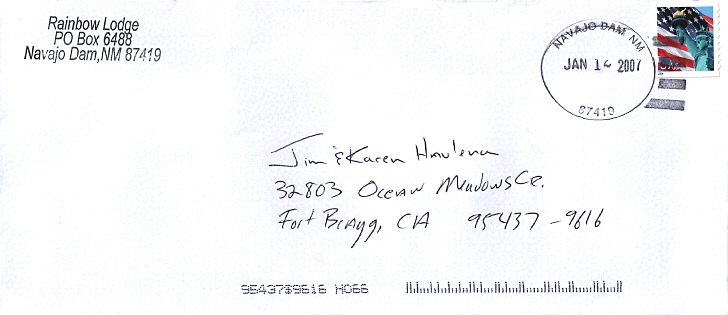 Rainbow Lodge
PO Box 6488
Navajo Dam,NM 87419
NAVAJO DAM, NM
JAN 16 2007
87419
Jim & Karen
32803 Ocean Meadows Cr.
Fort Bragg, CA 95437-9616
95437$9616 H066